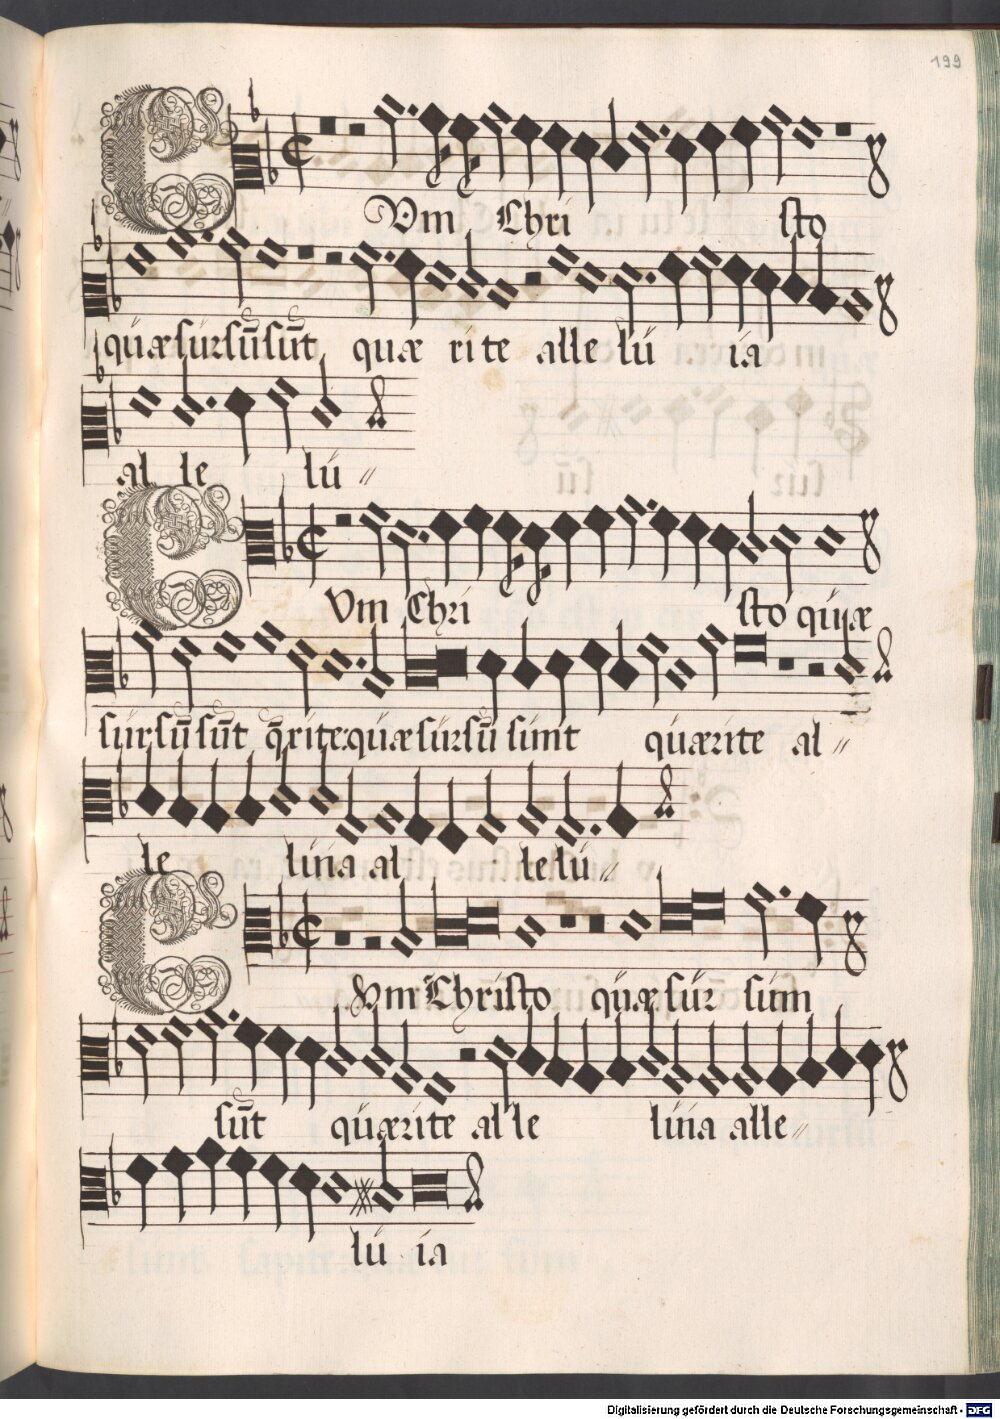 199
CVm Chri sto
quæ sursūsūt quæ rite alle lu ia
al le lu〃
CVm Chri sto quæ
sursūsūt q̄rite quæ sursū sunt quærite al〃
le luia al le lu〃
CVm Christo quæ sur sum
sūt quærite al le luia alle〃
lu ia
Digitalisierung gefördert durch die Deutsche Forschungsgemeinschaft - DFG